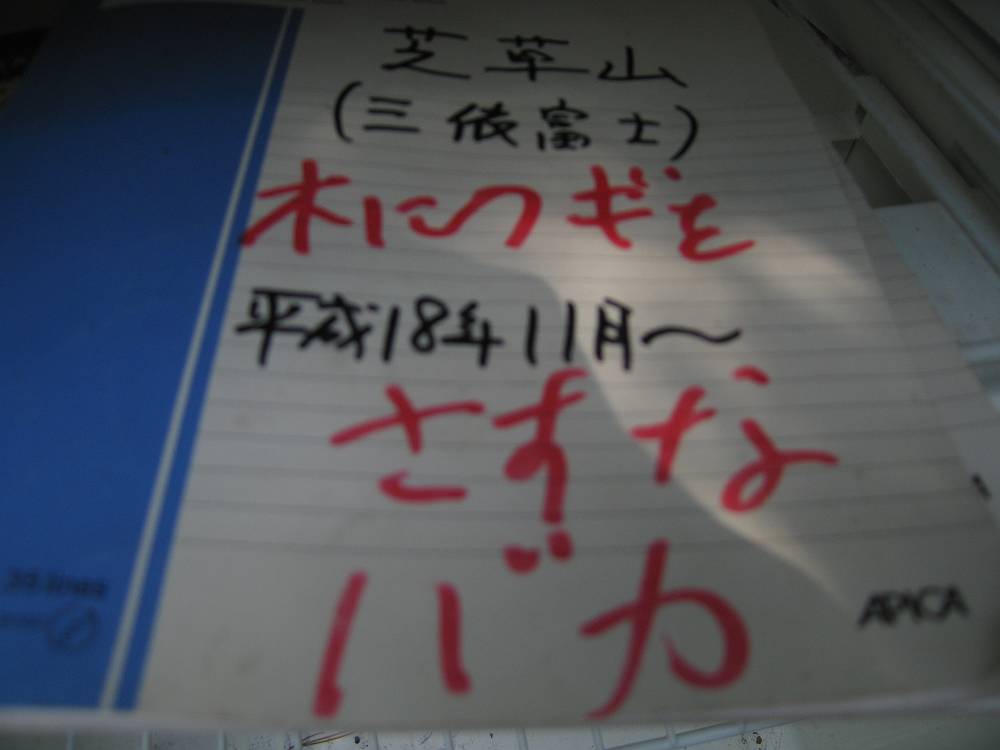 芝草山
(三依富士)
木につギを
平成18年11月〜
さすな
バカ
APICA